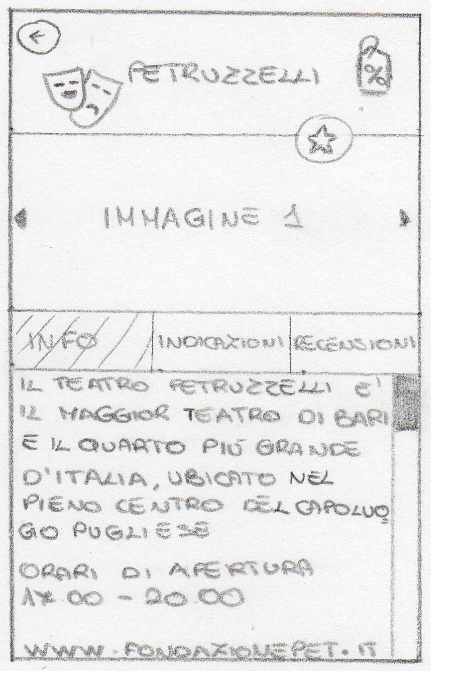 PETRUZZELLI
%
IMMAGINE 1
INFO
INDICAZIONI
RECENSIONI
IL TEATRO PETRUZZELLI E'
IL MAGGIOR TEATRO DI BARI
E IL QUARTO PIÙ GRANDE
D'ITALIA, UBICATO NEL
PIENO CENTRO DEL CAPOLUO
GO PUGLIESE
ORARI DI APERTURA
17.00 - 20.00
WWW.FONDAZIONEPET.IT